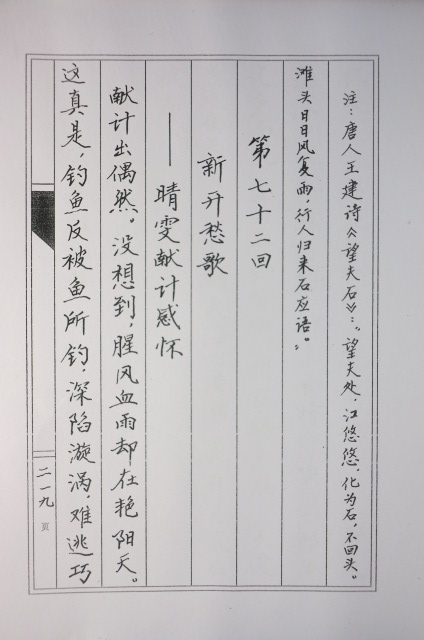 注：唐人王建诗《望夫石》：“望夫处，江悠悠，化为石，不回头。
滩头日日风复雨，行人归来石应语。”
第七十二回
新开愁歌
——晴雯献计感怀
献计出偶然。没想到，腥风血雨却在艳阳天。
这真是，钓鱼反被鱼所钓，深陷漩涡，难逃巧
二一九页